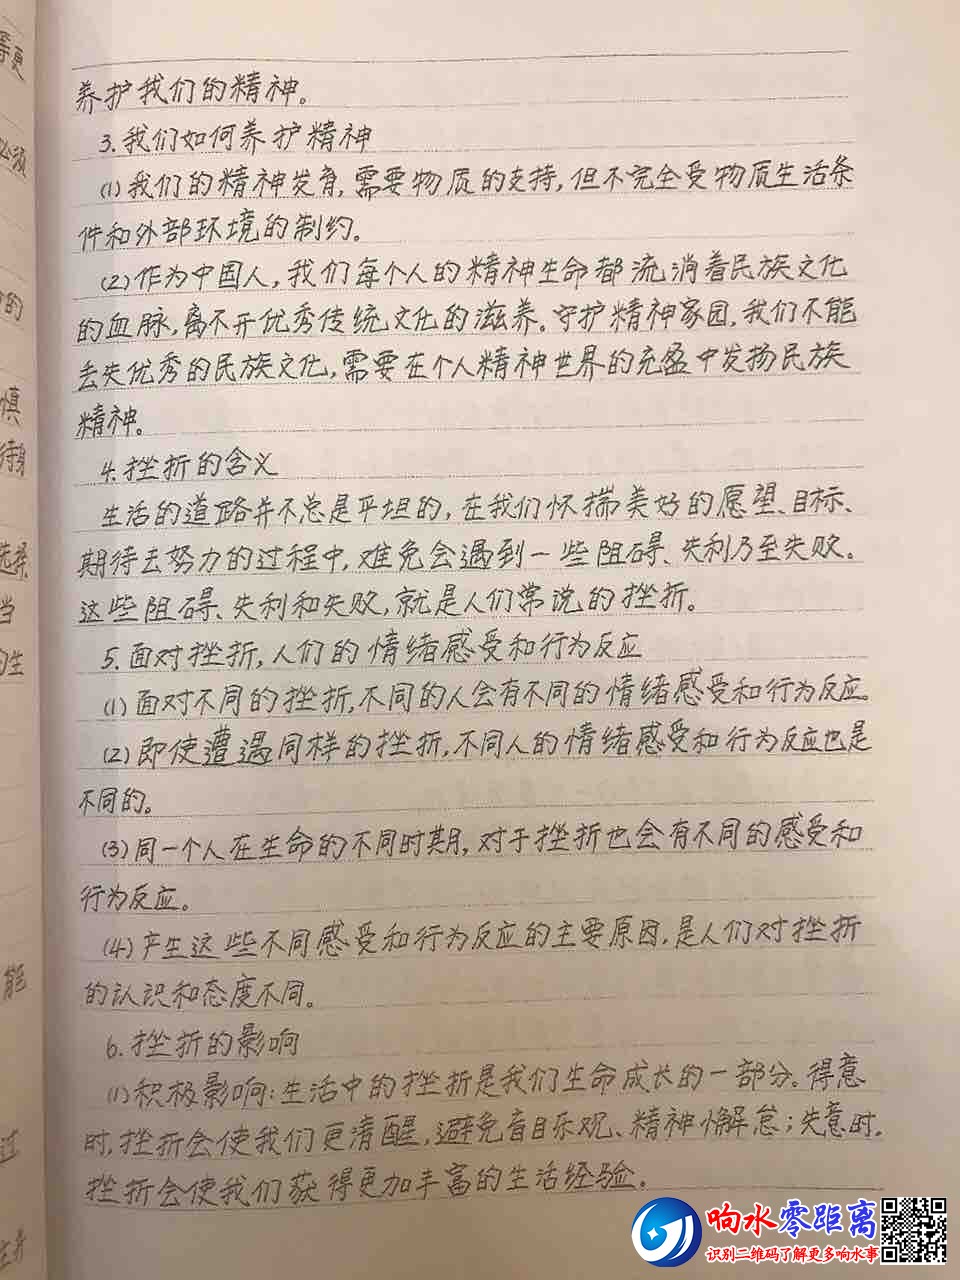 养护我们的精神。
3.我们如何养护精神
(1)我们的精神发育,需要物质的支持,但不完全受物质生活条
件和外部环境的制约。
(2)作为中国人,我们每个人的精神生命都流淌着民族文化
的血脉,离不开优秀传统文化的滋养。守护精神家园,我们不能
丢失优秀的民族文化,需要在个人精神世界的充盈中发扬民族
精神。
4.挫折的含义
生活的道路并不总是平坦的,在我们怀揣美好的愿望、目标、
期待去努力的过程中,难免会遇到一些阻碍、失利乃至失败。
这些阻碍、失利和失败,就是人们常说的挫折。
5.面对挫折,人们的情绪感受和行为反应
(1)面对不同的挫折,不同的人会有不同的情绪感受和行为反应。
(2)即使遭遇同样的挫折,不同人的情绪感受和行为反应也是
不同的。
(3)同一个人在生命的不同时期,对于挫折也会有不同的感受和
行为反应。
(4)产生这些不同感受和行为反应的主要原因,是人们对挫折
的认识和态度不同。
6.挫折的影响
(1)积极影响:生活中的挫折是我们生命成长的一部分。得意
时,挫折会使我们更清醒,避免盲目乐观、精神懈怠;失意时,
挫折会使我们获得更加丰富的生活经验。
等更
必须
的
慎
待身
选择
当
的生
能
过
响水零距离
识别二维码了解更多响水事